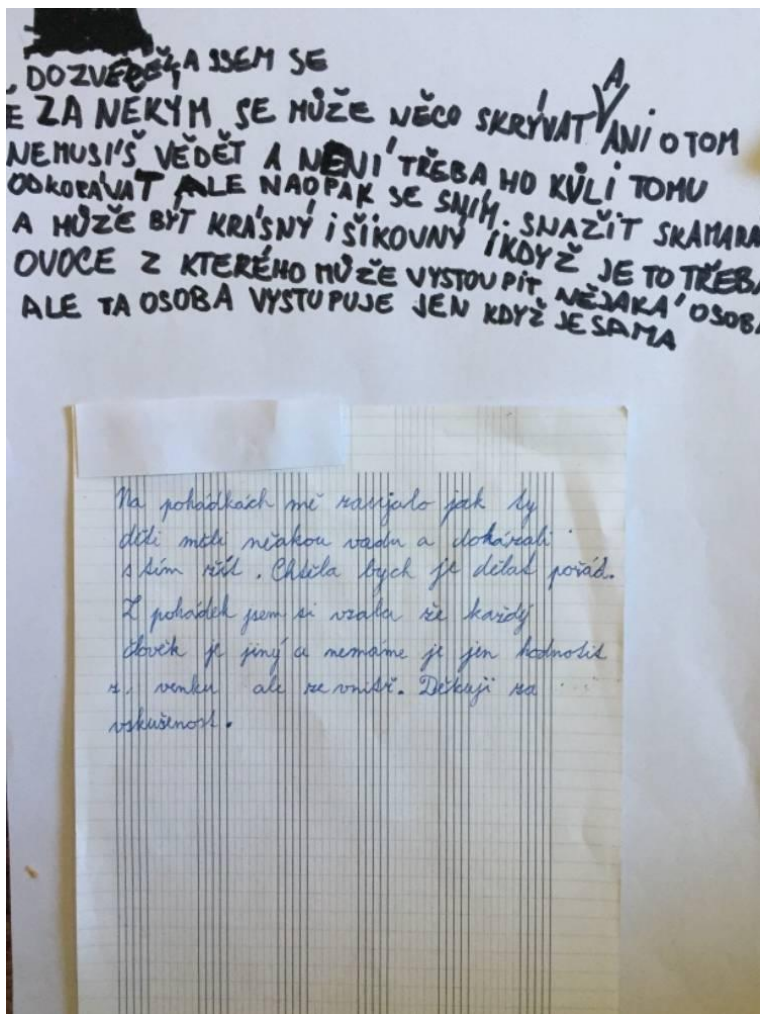 DOZVĚDĚLA JSEM SE
ZA NĚKÝM SE MŮŽE NĚCO SKRÝVAT A ANI O TOM
NEMUSÍŠ VĚDĚT A NENÍ TŘEBA HO KVŮLI TOMU
ODKOPÁVAT ALE NAOPAK SE SNÍM. SNAŽIT SKAMARÁ
A MŮŽE BÝT KRÁSNÝ I ŠIKOVNÝ IKDYŽ JE TO TŘEBA
OVOCE Z KTERÉHO MŮŽE VYSTOUPIT NĚJAKÁ OSOBA
ALE TA OSOBA VYSTUPUJE JEN KDYŽ JE SAMA
Na pohádkách mě zaujalo jak ty
děti měli něakou vadu a dokázali
s tím žít. Chtěla bych je dělat pořád.
Z pohádek jsem si vzala že každý
člověk je jiný a nemáme je jen hodnotit
z venku ale ze vnitř. Děkuji za
vskušenost.